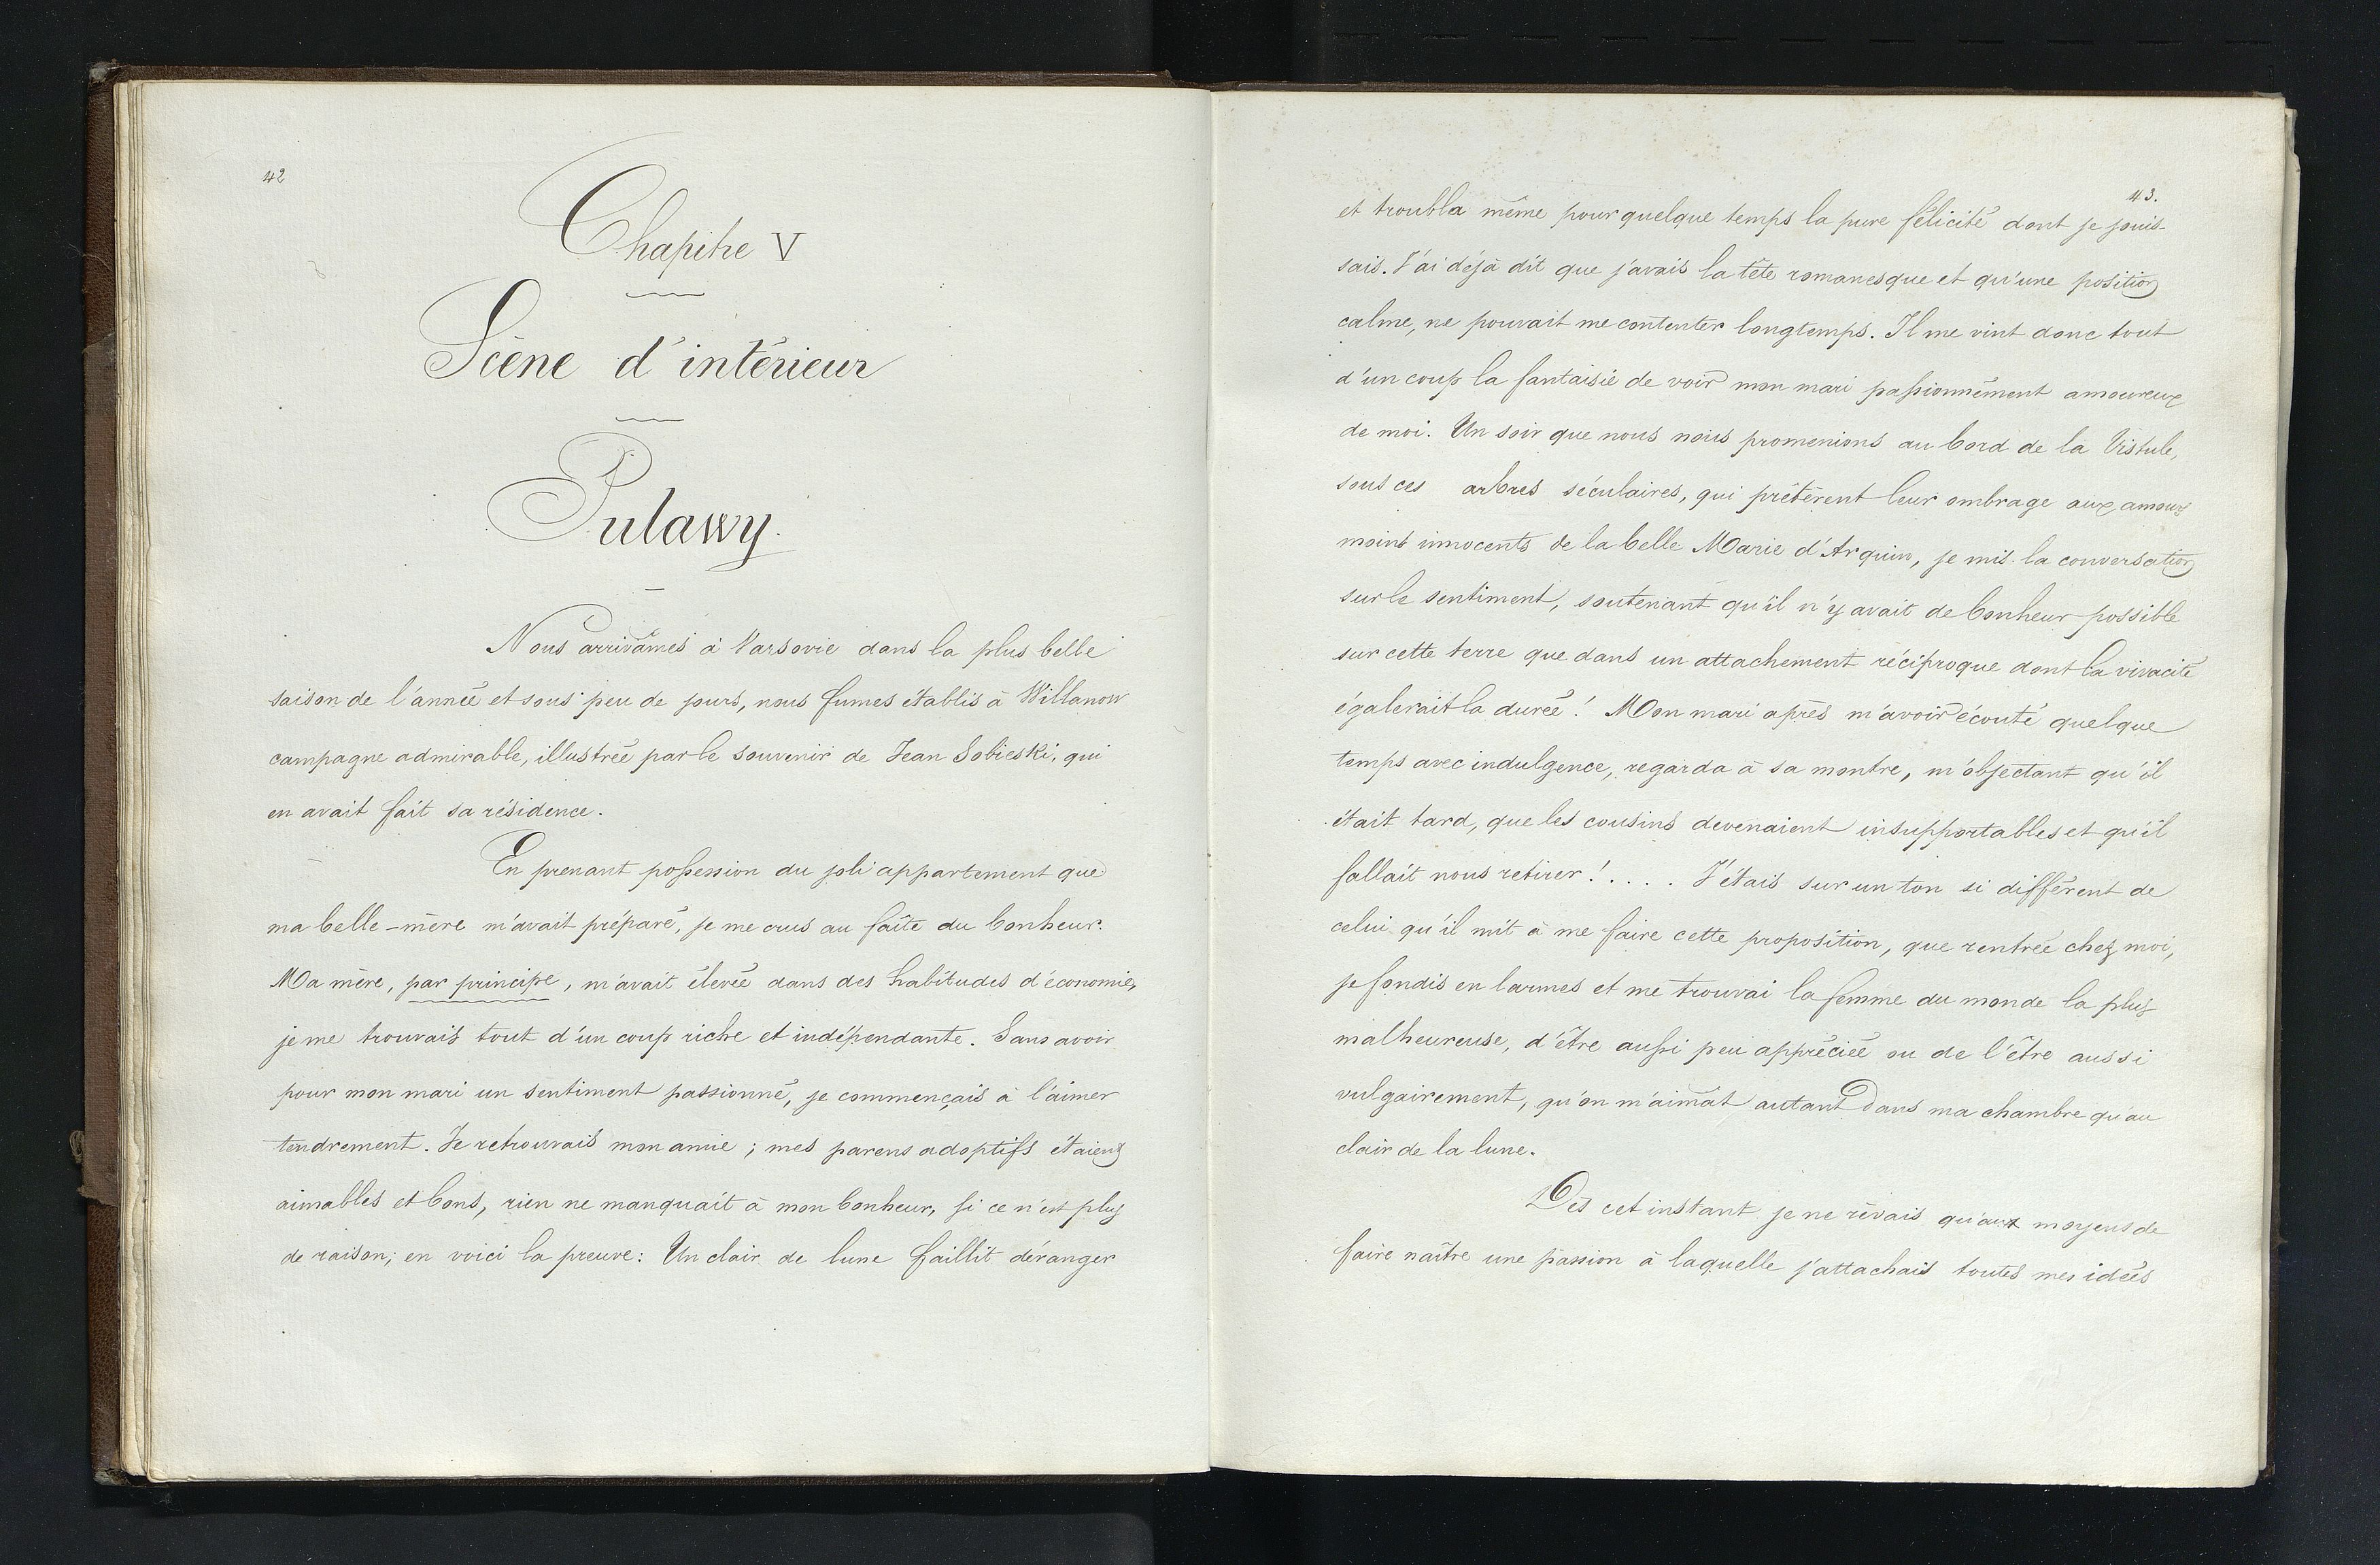 42
Chapitre V
Scène d'intérieur
Pulawy.
Nous arrivâmes à Varsovie dans la plus belle
saison de l'année et sous peu de jours, nous fumes établis à Willanow
campagne admirable, illustrée par le souvenir de Jean Sobieski, qui
en avait fait sa résidence.
En prenant possession du joli appartement que
ma belle-mère m'avait préparé, je me crus au faîte du bonheur.
Ma mère, par principe, m'avait élevée dans des habitudes d'économie,
je me trouvais tout d'un coup riche et indépendante. Sans avoir
pour mon mari un sentiment passionné, je commençais à l'aimer
tendrement. Je retrouvais mon amie ; mes parens adoptifs étaient
aimables et bons, rien ne manquait à mon bonheur, si ce n'est plus
de raison; en voici la preuve: Un clair de lune faillit déranger
43.
et troubla même pour quelque temps la pure félicité dont je jouis-
sais. J'ai déjà dit que j'avais la tête romanesque et qu'une position
calme, ne pouvait me contenter longtemps. Il me vint donc tout
d'un coup la fantaisie de voir mon mari passionnément amoureux
de moi. Un soir que nous nous promenions au bord de la Vistule,
sous ces arbres séculaires, qui prêtèrent leur ombrage aux amours
moins innocents de la belle Marie d'Arquin, je mis la conversation
sur le sentiment, soutenant qu'il n'y avait de bonheur possible
sur cette terre que dans un attachement réciproque dont la vivacité
égalerait la durée ! Mon mari après m'avoir écouté quelque
temps avec indulgence, regarda à sa montre, m'objectant qu'il
était tard, que les cousins devenaient insupportables et qu'il
fallait nous retirer !.... J'étais sur un ton si différent de
celui qu'il mit à me faire cette proposition, que rentrée chez moi,
je fondis en larmes et me trouvai la femme du monde la plus
malheureuse, d'être aussi peu appréciée ou de l'être aussi
vulgairement, qu'on m'aimât autant dans ma chambre qu'au
clair de la lune.
Dès cet instant je ne rêvais qu'aux moyens de
faire naître une passion à laquelle j'attachais toutes mes idées